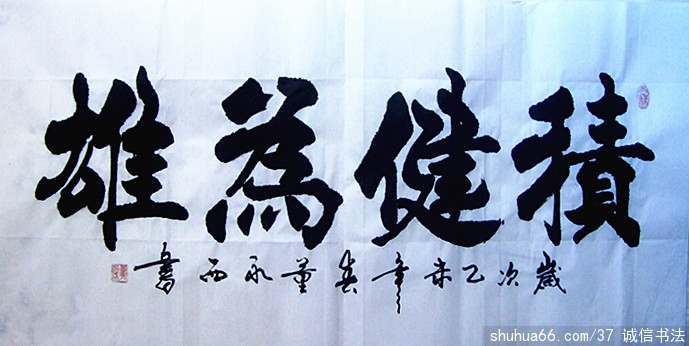 積健為雄
歲次乙未年春董永西書
shuhua66.com/37 诚信书法